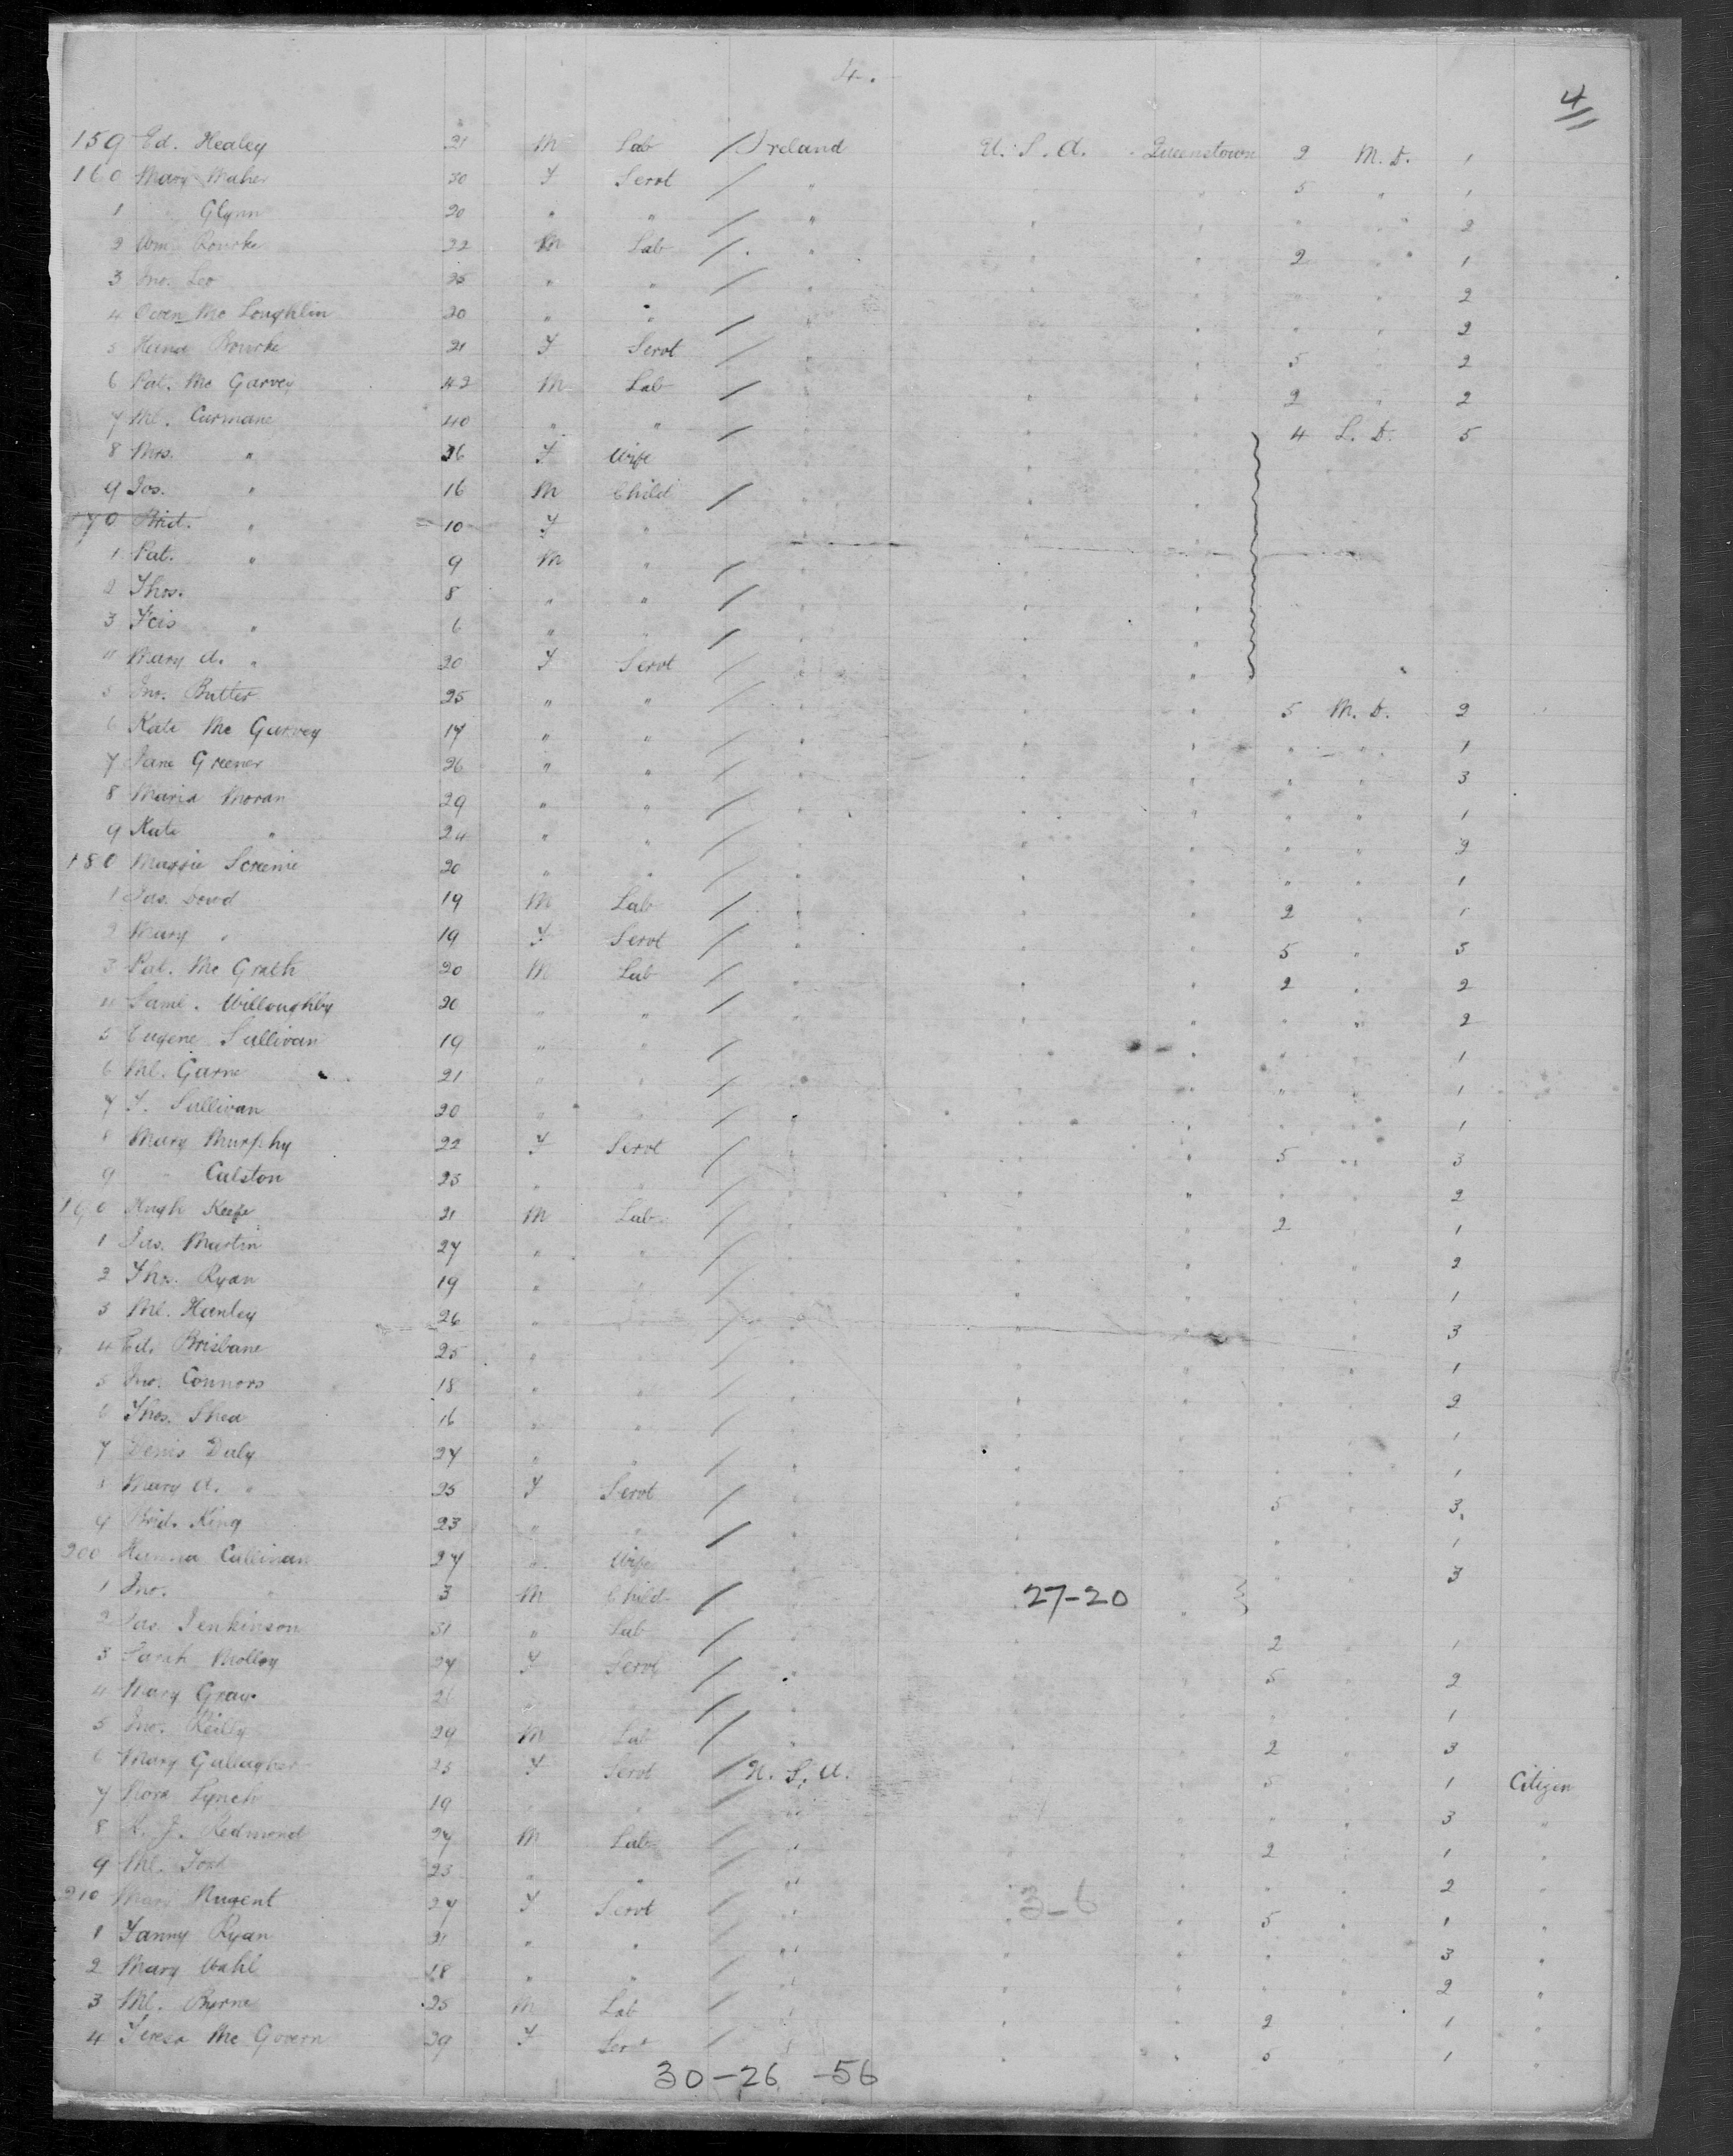 4.
4
159 Ed. Healey 21 M Lab / Ireland U.S.A. Queenstown 2 M.D. 1
160 Mary Maher 30 F Servt / " " " 5 " 1
1 " Glynn 20 " " / " " " " " 2
2 Wm. Rourke 22 M Lab / " " " 2 " 1
3 Jno. Leo 25 " " / " " " " " 2
4 Owen Mc Loughlin 20 " " / " " " " " 2
5 Hana Rourke 21 F Servt / " " " 5 " 2
6 Pat. Mc Garvey 42 M Lab / " " " 2 " 2
7 Ml. Curmane 40 " " / " " " 4 L.D. 5
8 Mrs. " 36 F Wife " "
9 Jos. " 16 M Child / " " "
170 Brid. " 10 F " " "
1 Pat. " 9 M " / " " "
2 Thos. 8 " " / " " "
3 Fcis " 6 " " / " " "
4 Mary A. " 20 F Servt / " " "
5 Jno. Butler 25 " " / " " " 5 M.D. 2
6 Kate Mc Garvey 17 " " / " " " " " 1
7 Jane Greener 26 " " / " " " " " 3
8 Maria Moran 29 " " / " " " " " 1
9 Kate " 24 " " / " " " " " 2
180 Maggie 20 " " / " " " " " 1
1 Jas. Dowd 19 M Lab / " " " 2 " 1
2 Mary " 19 F Servt / " " " 5 " 3
3 Pat. Mc Grath 20 M Lab / " " " 2 " 2
4 Saml. Willoughby 20 " " / " " " " " 2
5 Eugene Sullivan 19 " " / " " " " " 1
6 Ml. Garne 21 " " / " " " " " 1
7 T. Sullivan 20 " " / " " " " " 1
8 Mary Murphy 22 F Servt / " " " 5 " 3
9 " Calston 23 " " / " " " " " 2
190 Hugh Keefe 21 M Lab / " " " 2 " 1
1 Jas. Martin 27 " " / " " " " " 2
2 Thos. Ryan 19 " " / " " " " " 1
3 Ml. Hanley 26 " " / " " " " " 3
4 Ed. Brisbane 25 " " / " " " " " 1
5 Jno. Connors 18 " " / " " " " " 2
6 Thos. Shea 16 " " / " " " " " 1
7 Denis Daly 27 " " / " " " " " 1
8 Mary A. " 25 F Servt / " " " 5 " 3
9 Brid. King 23 " " / " " " " " 1
200 Hanna Cullinan 27 " Wife " " " " 3
1 Jno. " 3 M Child / " 27-20 "
2 Jas. Jenkinson 31 " Lab / " " " 2 " 1
3 Sarah Molloy 27 F Servt / " " " 5 " 2
4 Mary Gray 21 " " / " " " " " 1
5 Jno. Reilly 29 M Lab / " " " 2 " 3
6 Mary Gallagher 23 F Servt / U.S.A. " " 5 " 1 Citizen
7 Nora Lynch 19 " " / " " " " " 3 "
8 Redmond 27 M Lab / " " " 2 " 1 "
9 Ml. Ford 23 " " / " " " " " 2 "
210 Mary Nugent 27 F Servt / " 3-6 " 5 " 1 "
1 Fanny Ryan 21 " " / " " " " " 3 "
2 Mary Wahl 18 " " / " " " " " 2 "
3 Ml. Byrne 25 M Lab / " " " 2 " 1 "
4 Teresa Mc Govern 29 F Servt / " " " 5 " 1 "
30-26-56